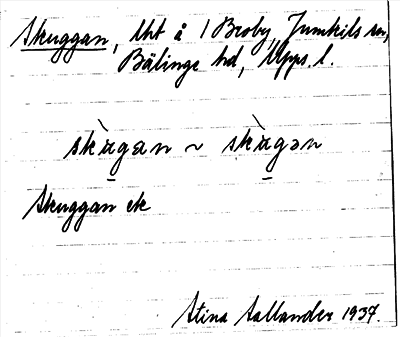 Skuggan, lht å 1 Broby, Jumkils sn,
Bälinge hd, Upps. l.
skàgan ~ skàgən
Skuggan ek
Stina Sallander 1937.